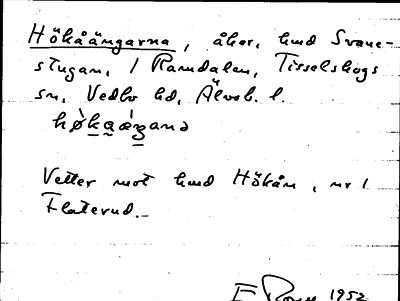 Hökåängarna, åker, hmd Svane-
stugan, 1 Ramdalen, Tisselskogs
sn, Vedbo hd, Älvsb. l.
Vetter mot hmd Hökån, nr 1
Flaterud.
E 1952